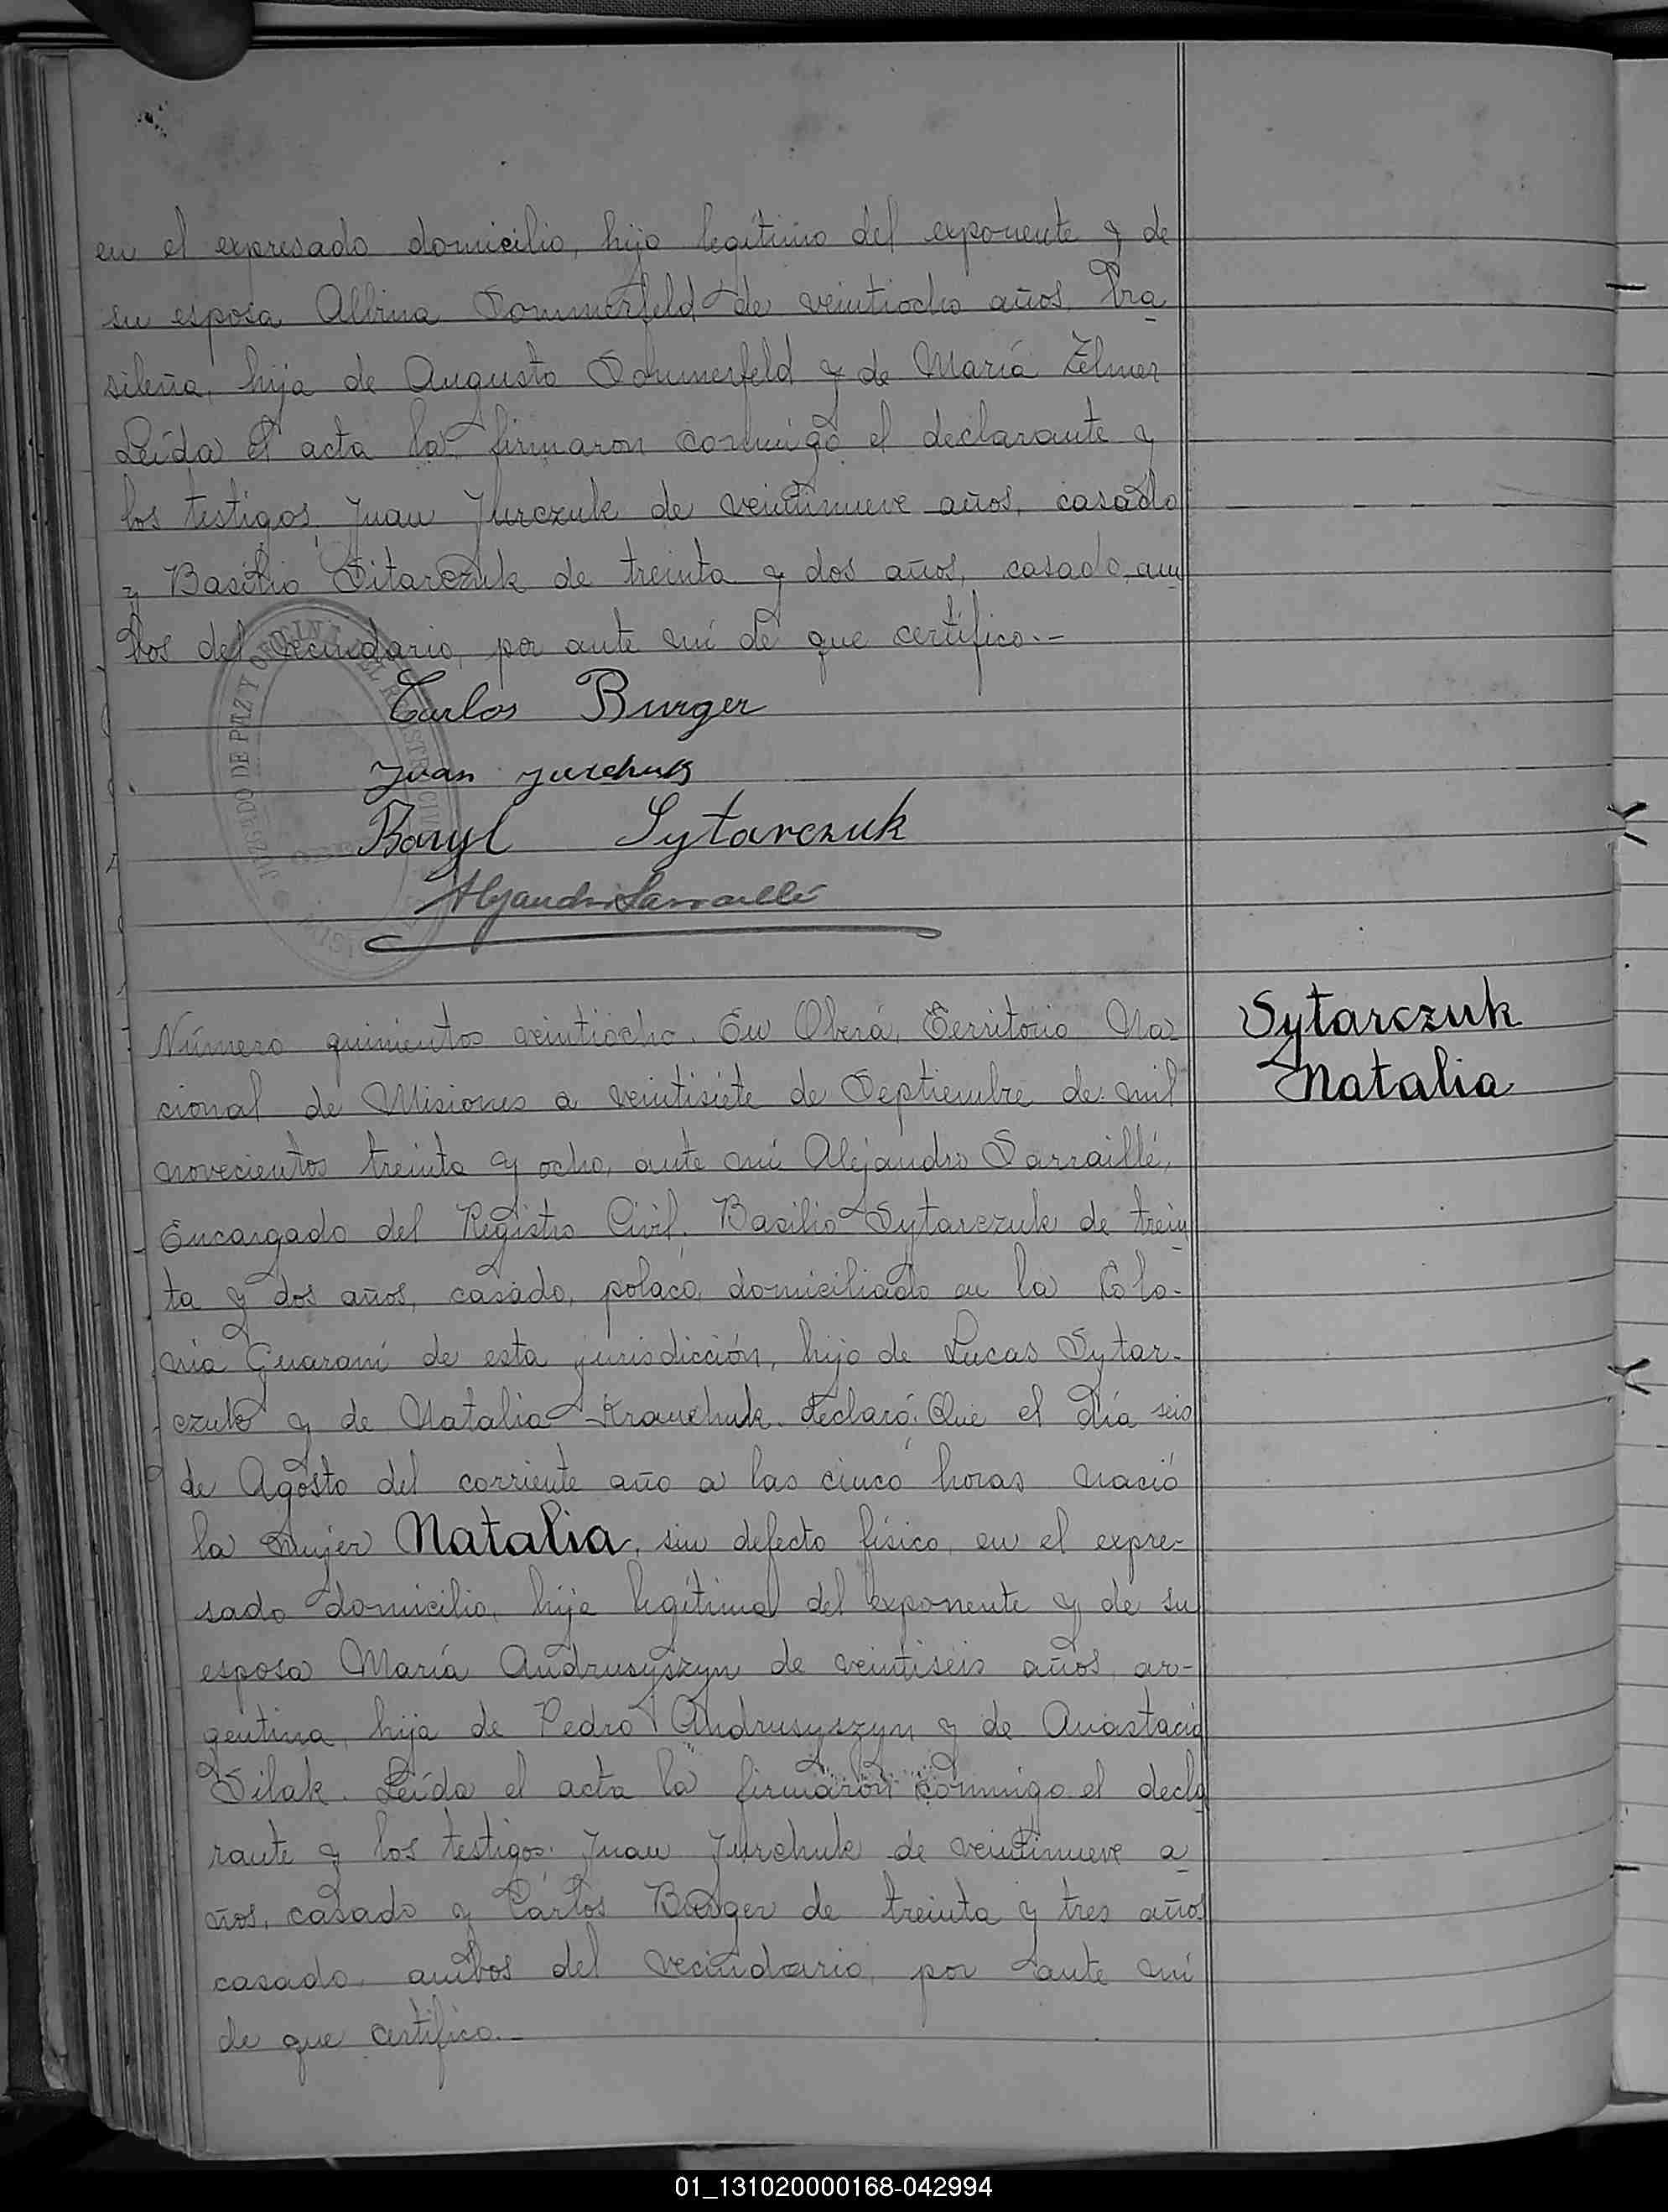 en el expresado domicilio, hijo legítimo del exponente y de
su esposa Albina Sommerfeld de veintiocho años, bra
sileña, hija de Augusto Sommerfeld y de María Zelmer
Leída el acta la firmaron conmigo el declarante y
los testigos: Juan Jurczuk de veintinueve años, casado
y Basilio Sitarczuk de treinta y dos años, casado, am
bos del vecindario, por ante mí de que certifico.-
JUZGADO DE PAZ Y OFICINA DEL REGISTRO CIVIL
Carlos Burger
Juan Jurchuk
Bazyl Sytarczuk
Alejandro Sarraillé
Número quinientos veintiocho. En Oberá, Territorio Na-
cional de Misiones a veintisiete de Septiembre de mil
novecientos treinta y ocho, ante mí Alejandro Sarraillé,
Encargado del Registro Civil. Basilio Sytarczuk de trein
ta y dos años, casado, polaco, domiciliado en la Colo-
nia Guaraní de esta jurisdicción, hijo de Lucas Sytar-
czuk y de Natalia Krauchuk. declaró: Que el día seis
de Agosto del corriente año a las cinco horas nació
la mujer Natalia, sin defecto físico, en el expre-
sado domicilio, hija legítima del exponente y de su
esposa María Andrusyszyn de veintiseis años, ar-
gentina, hija de Pedro Andrusyszyn y de Anastacia
Silak. Leída el acta la firmaron conmigo el decla
rante y los testigos: Juan Jurchuk de veintinueve a
ños, casado y Carlos Burger de treinta y tres años
casado, ambos del vecindario, por ante mí
de que certifico.-
Sytarczuk
Natalia
01_131020000168-042994